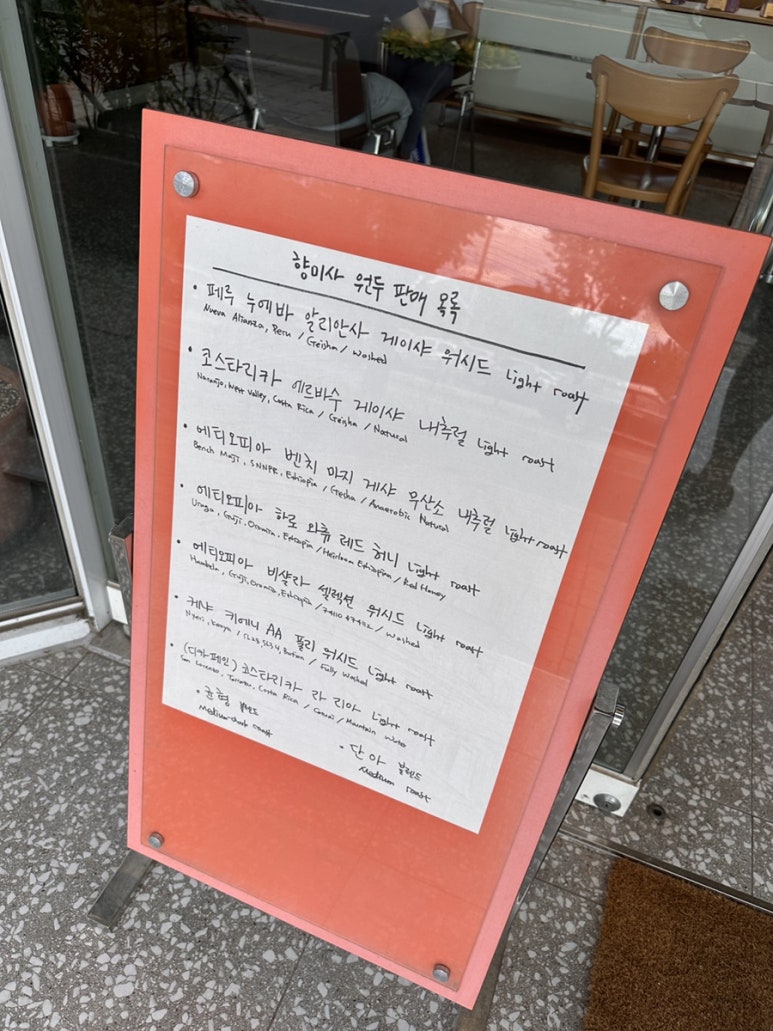 향미사 원두 판매 목록
• 페루 누에바 알리안사 게이샤 워시드 light roast
Nueva Alianza, Peru / Geisha / Washed
• 코스타리카 에르바수 게이샤 내추럴 light roast
Naranjo, West Valley, Costa Rica / Geisha / Natural
• 에티오피아 벤치 마지 게샤 무산소 내추럴 light roast
Bench Maji, SNNPR, Ethiopia / Gesha / Anaerobic Natural
• 에티오피아 하로 와츄 레드 허니 light roast
Uraga, Guji, Oromia, Ethiopia / Heirloom Ethiopian / Red Honey
• 에티오피아 비샬라 셀렉션 워시드 light roast
Hambela, Guji, Oromia, Ethiopia / 74110 & 74112 / Washed
• 케냐 키에니 AA 풀리 워시드 light roast
Nyeri, Kenya / SL28, SL34, Batian / Fully Washed
• (디카페인) 코스타리카 라 리아 light roast
San Lorenzo, Tarrazu, Costa Rica / Catuai / Mountain Water
• 균형 블렌드
Medium-dark roast
• 단아 블렌드
Medium roast